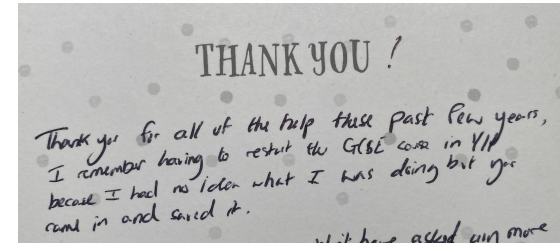 THANK YOU !
Thank you for all of the help these past few years,
I remember having to restart the GCSE course in Y11
because I had no idea what I was doing but you
came in and saved it.
have asked more